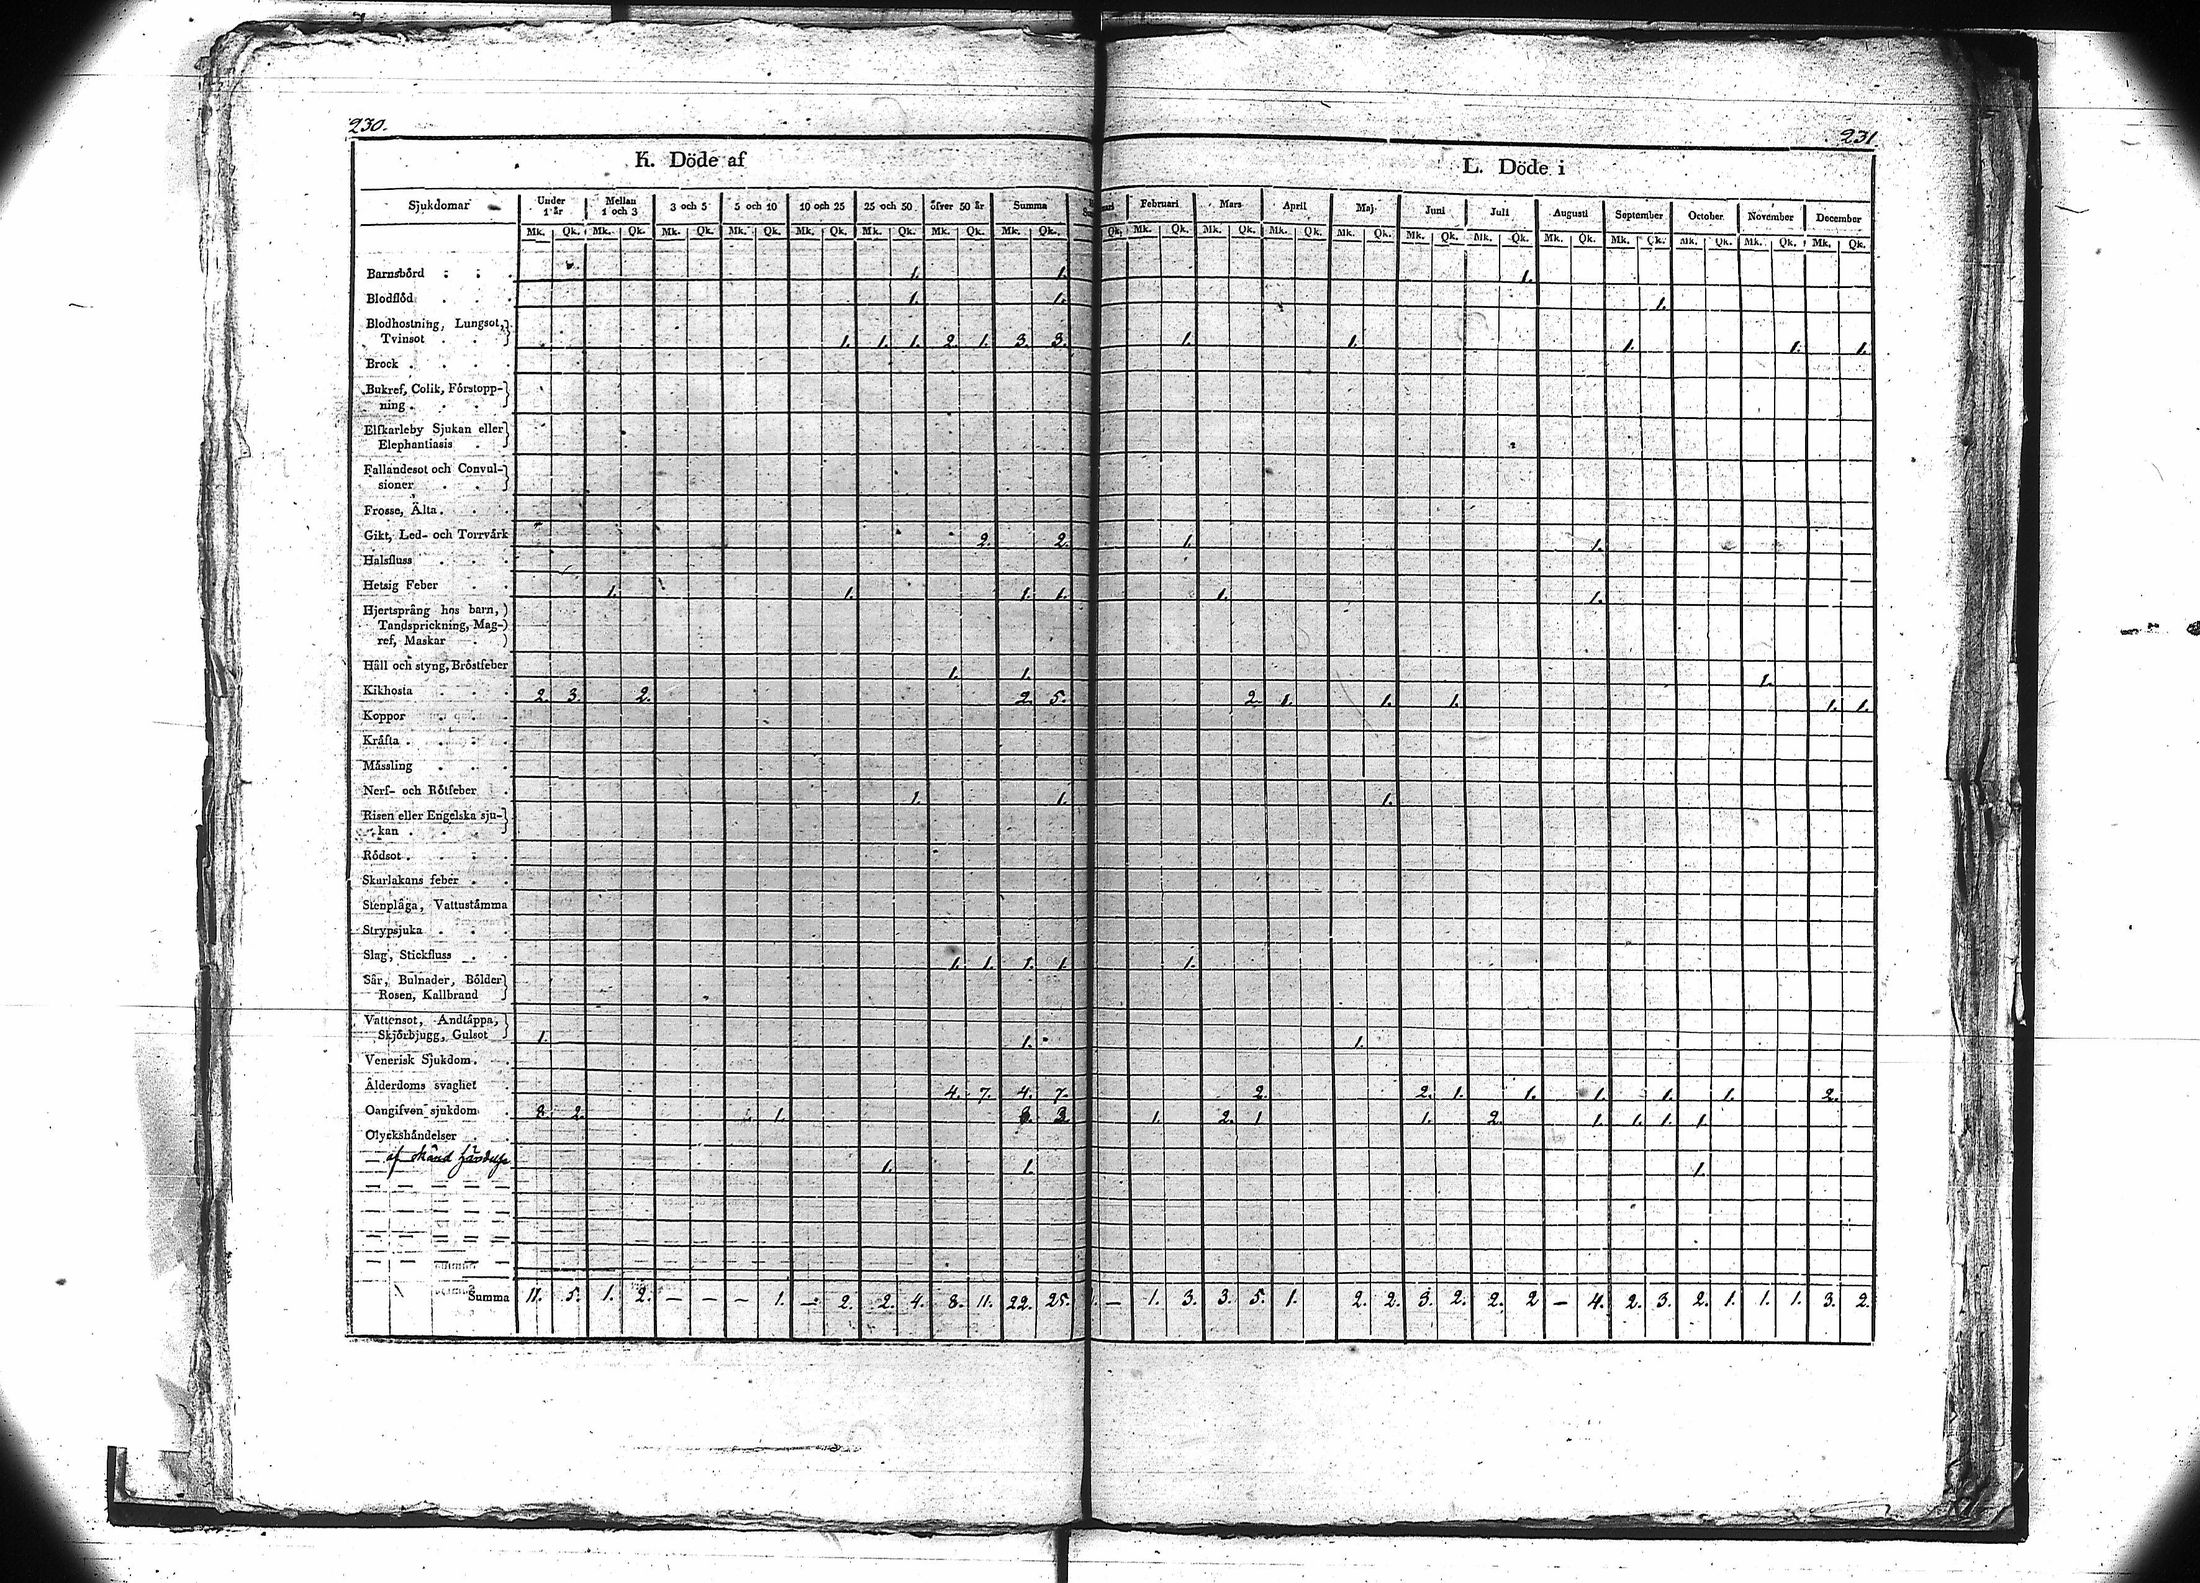 230.
231
K. Döde af
L. Döde i
Sjukdomar Under 1 år Mellan 1 och 3 3 och 5 5 och 10 10 och 25 25 och 50 öfver 50 år Summa Februari Mars April Maj Juni Juli Augusti September October November December
Mk. Qk. Mk. Qk. Mk. Qk. Mk. Qk. Mk. Qk. Mk. Qk. Mk. Qk. Mk. Qk. Qk. Mk. Qk. Mk. Qk. Mk. Qk. Mk. Qk. Mk. Qk. Mk. Qk. Mk. Qk. Mk. Qk. Mk. Qk. Mk. Qk. Mk. Qk.
Barnsbörd 1. 1. 1.
Blodflöd 1. 1. 1.
Blodhostning, Lungsot,
Tvinsot 1. 1. 1. 2. 1. 3. 3. 1. 1. 1. 1. 1.
Brock
Bukref, Colik, Förstopp-
ning
Elfkarleby Sjukan eller
Elephantiasis
Fallandesot och Convul-
sioner
Frosse, Älta
Gikt, Led- och Torrvärk 2. 2. 1. 1.
Halsfluss
Hetsig Feber 1. 1. 1. 1. 1. 1.
Hjertsprång hos barn,
Tandsprickning, Mag-
ref, Maskar
Håll och styng, Bröstfeber 1. 1. 1.
Kikhosta 2. 3. 2. 2. 5. 2. 1. 1. 1. 1. 1.
Koppor
Kräfta
Mässling
Nerf- och Rötfeber 1. 1. 1.
Risen eller Engelska sju-
kan
Rödsot
Skarlakans feber
Stenplåga, Vattustämma
Strypsjuka
Slag, Stickfluss 1. 1. 1. 1. 1.
Sår, Bulnader, Bölder
Rosen, Kallbrand
Vattensot, Andtäppa,
Skjörbjugg, Gulsot 1. 1. 1.
Venerisk Sjukdom
Ålderdoms svaghet 4. 7. 4. 7. 2. 2. 1. 1. 1. 1. 1. 2.
Oangifven sjukdom 8. 2. 1. 8. 3. 1. 2. 1 1. 2. 1. 1. 1. 1
Olyckshändelser
af 1. 1. 1.
Summa 11. 5. 1. 2. — — — 1. — 2. 2. 4. 8. 11. 22. 25. 1. — 1. 3. 3. 5. 1. 2. 2. 3. 2. 2. 2 — 4. 2. 3. 2. 1. 1. 1. 3. 2.